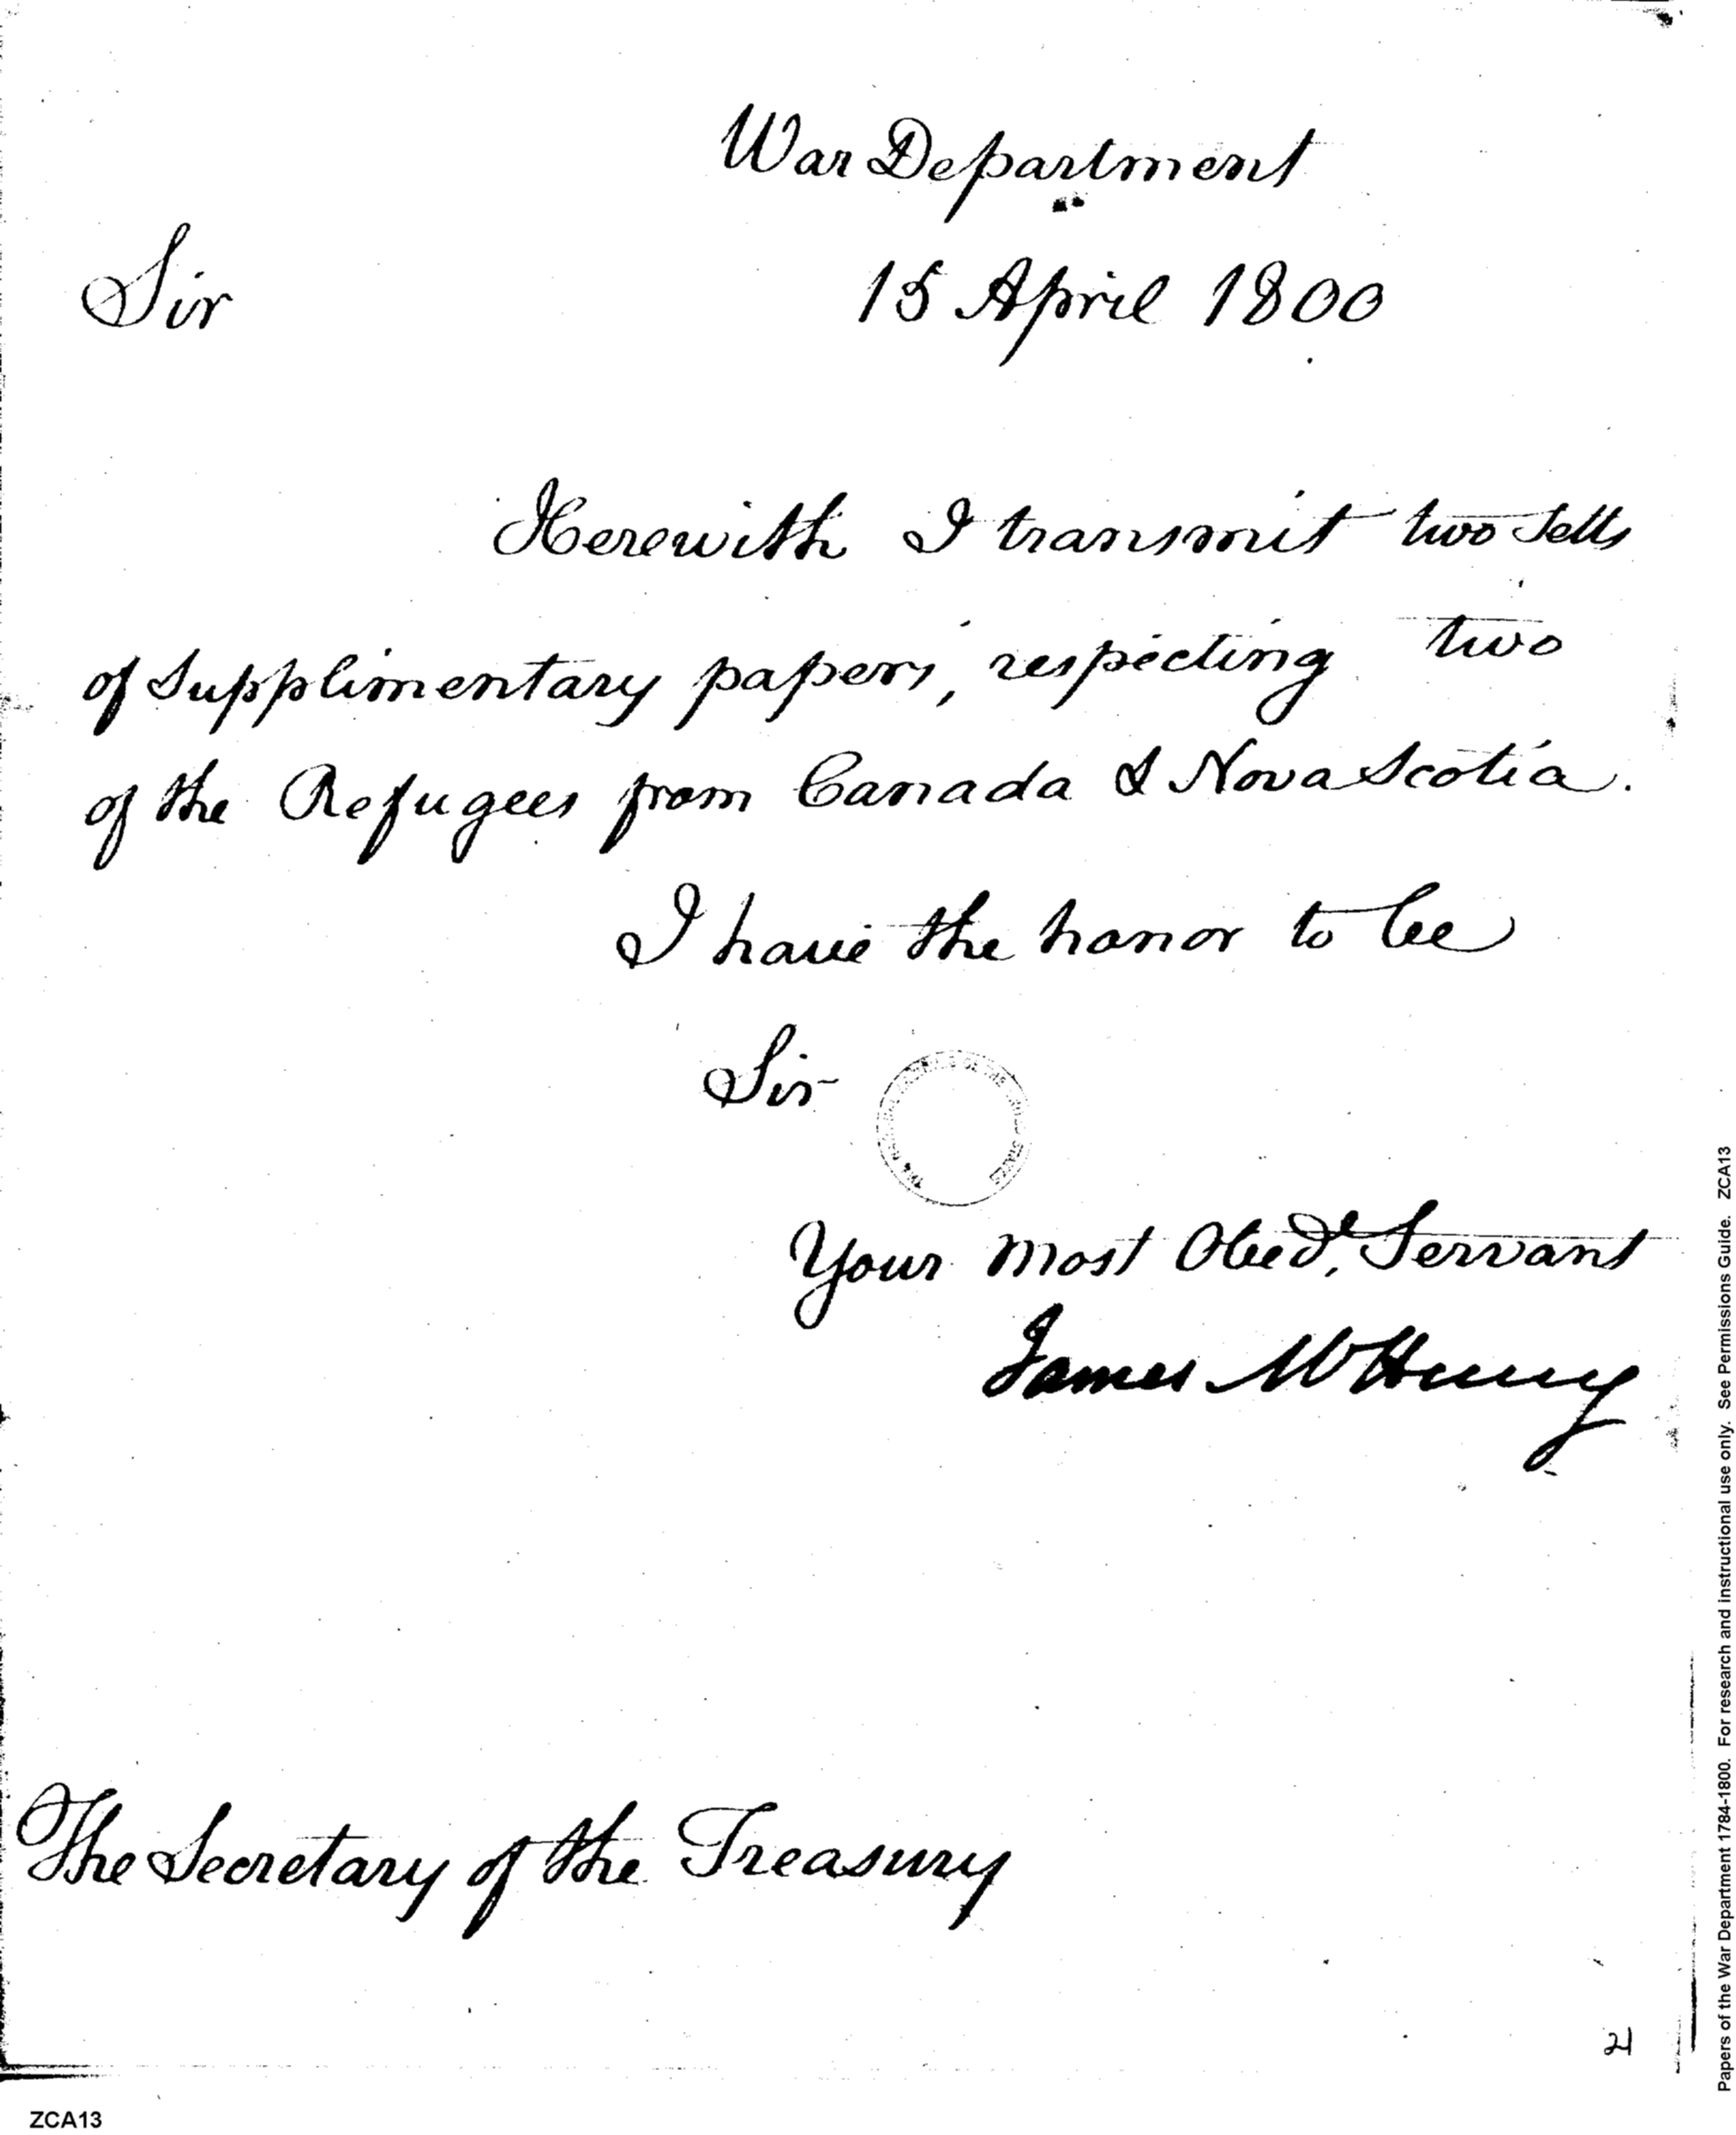 War Department
Sir 15 April 1800
Herewith I transmit two Setts
of Supplimentary papers, respecting two
of the Refugees from Canada & Nova Scotia.
I have the honor to be
Sir
Your most Obed.t Servant
James McHenry
The Secretary of the Treasury
21
ZCA13
Papers of the War Department 1784-1800. For research and instructional use only. See Permissions Guide. ZCA13